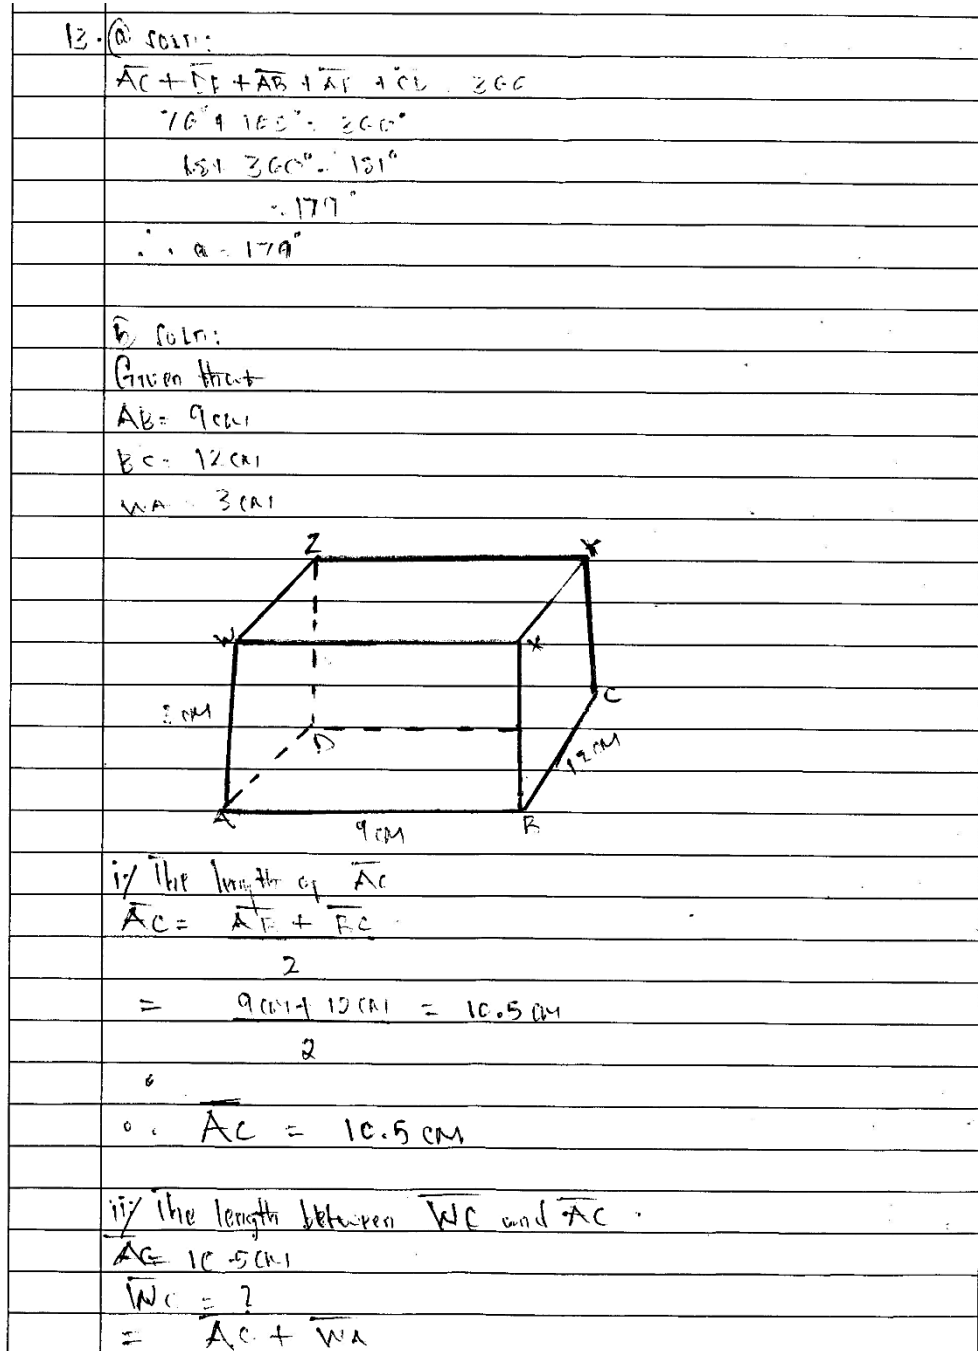 13. (a) soln:
AC + + AB + + = 360
76° + 105° = 360°
181 360° - 181°
= 179°
∴ a = 179°
b soln:
Given that
AB = 9cm
BC = 12cm
WA = 3cm
Z Y
W X
3cm C
D 12cm
A 9cm B
i/ The length of AC
AC = AB + BC
2
= 9cm + 12cm = 10.5cm
2
∴ AC = 10.5cm
ii/ The length between WC and AC.
AC = 10.5cm
WC = ?
= AC + WA